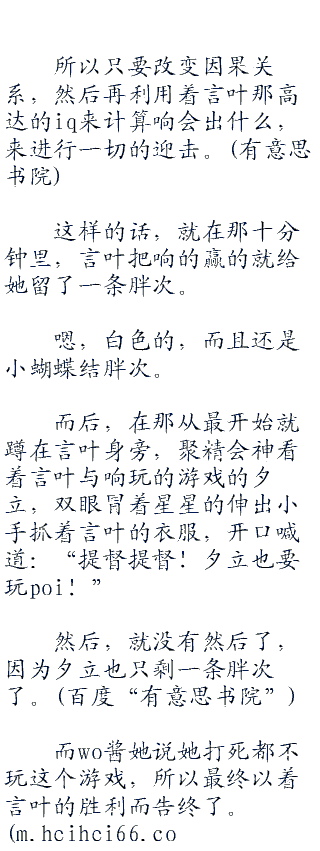 所以只要改变因果关
系，然后再利用着言叶那高
达的iq来计算响会出什么，
来进行一切的迎击。(有意思
书院)
这样的话，就在那十分
钟里，言叶把响的赢的就给
她留了一条胖次。
嗯，白色的，而且还是
小蝴蝶结胖次。
而后，在那从最开始就
蹲在言叶身旁，聚精会神看
着言叶与响玩的游戏的夕
立，双眼冒着星星的伸出小
手抓着言叶的衣服，开口喊
道：“提督提督！夕立也要
玩poi！”
然后，就没有然后了，
因为夕立也只剩一条胖次
了。(百度“有意思书院”)
而wo酱她说她打死都不
玩这个游戏，所以最终以着
言叶的胜利而告终了。
(m.hcihci66.co